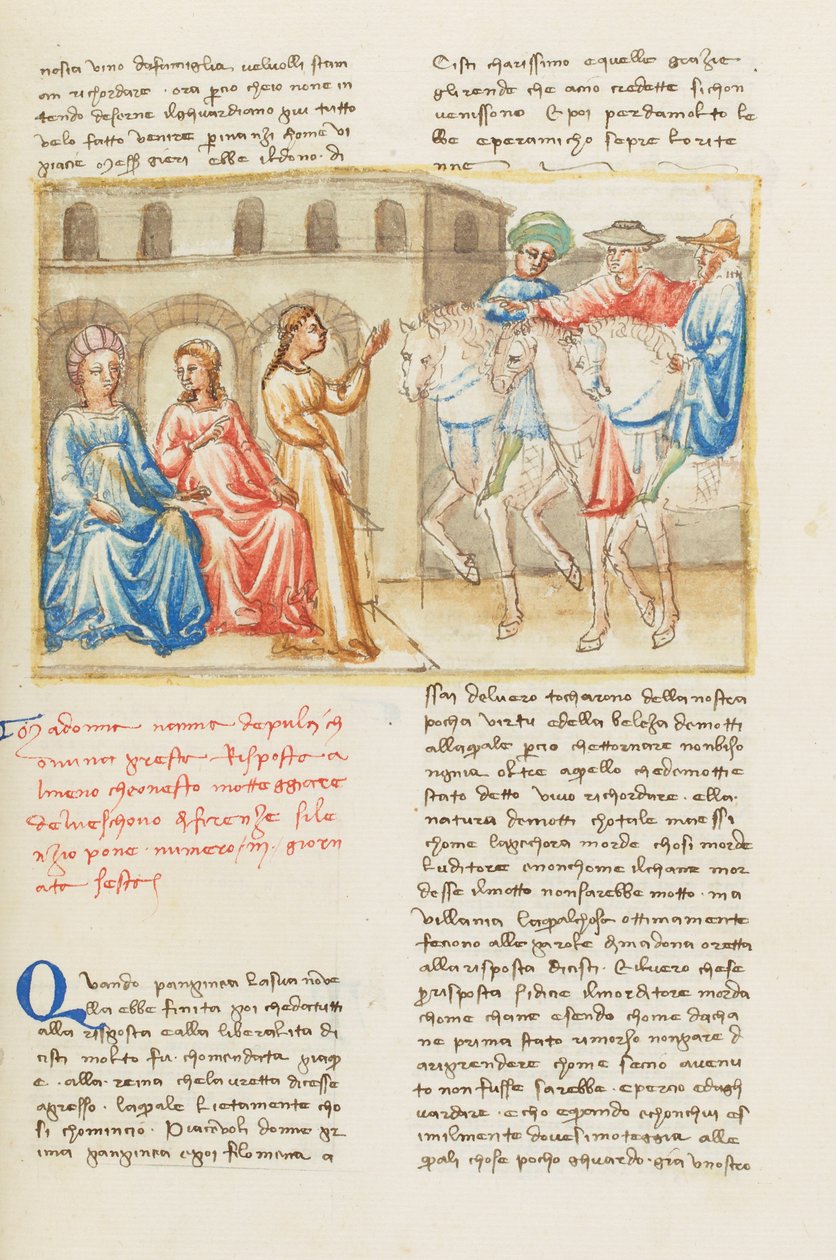 nosta vino dafamiglia velvolli stam
an richordare · ora percio cheio none in
tendo deserne ilghuardiano piu tutto
velo fatto venire perinanzi chome vi
piacie Messer gieri ebbe ildono · di
Cisti charissimo equelle grazie
glirende che acio credette sichon
venissono Epoi perdamolto le
bbe eperamicho sepre lorite
nne
Madonna nonna depulcіch
onuna presta Risposta a
lmeno cheonesto motteggiare
delveschovo difirenze sile
nzio pone · numero · iij · giorn
ata sesta
Quando panpinea lasua nove
lla ebbe finita poi chedatutti
alla risposta ealla liberalita di
cisti molto fu · chomendata piaqu
e · alla · reina chelavretta dicesse
apresso · laquale lietamente cho
si chomincio · Piacevoli donne pr
ima panpinea epoi filomena a
ssai delvero tocharono dellanostra
pocha virtu edella beleza demotti
allaquale percio chettornare nonbiso
ngnia oltre aquello chedemottie
stato detto vivo richordare · ella ·
natura demotti chotale maessi
chome lapechora morde chosi morde
luditore enonchome ilchane mor
desse ilmotto nonsarebbe motto · ma
villania laqualchosa ottimamente
fecono alle parole dimadona oretta
allarisposta dicisti · Eilvero chese
perrisposta sidicie ilmorditore morda
chome chane esendo chome dacha
ne prima stato rimorso nonpare d
ariprendere chome secio aveniu
to non fusse sarebbe · epercio edagh
uardare · echo equando echonchui es
imilmente dovesimoteggia alle
quali chose pocho ghuardo · gia vnostro